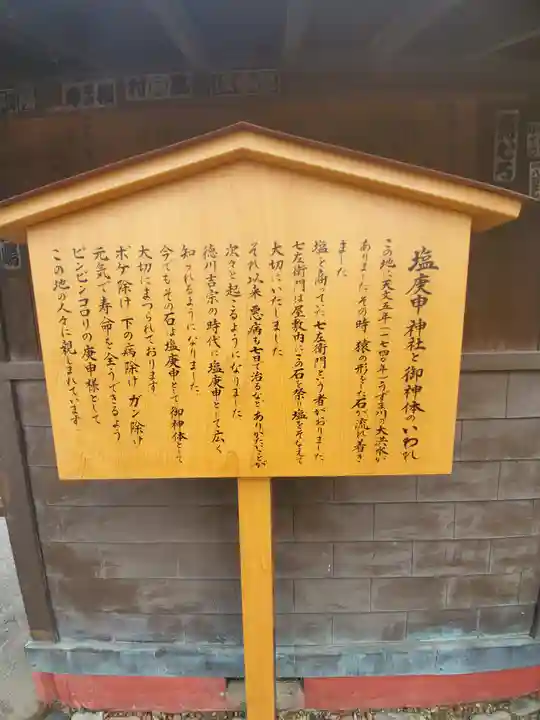 塩庚申神社と御神体のいわれ
この地に天文五年(一七四〇年)うずま川の大洪水が
ありました その時 猿の形をした石が流れ着き
ました
塩を商っていた七左衛門という者がおりました
七左衛門は屋敷内にこの石を祭り塩をそなえて
大切にいたしました
それ以来 悪病も七日で治るなど ありがたいことが
次々と起こるようになりました
徳川吉宗の時代に塩庚申として広く
知られるようになりました
今でもその石は塩庚申として御神体として
大切にまつられております
ボケ除け 下の病除け ガン除け
元気で寿命を全うできるよう
ピンピンコロリの庚申様として
この地の人々に親しまれています